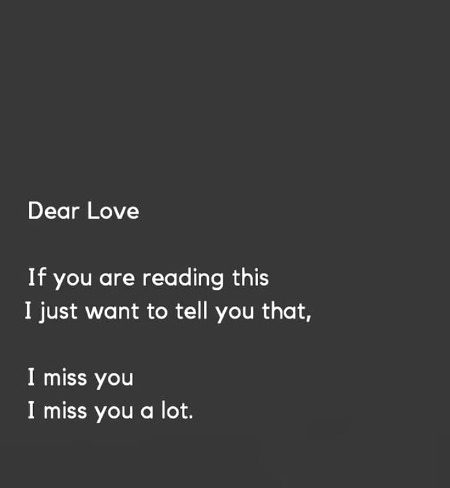 Dear Love
If you are reading this
I just want to tell you that,
I miss you
I miss you a lot.